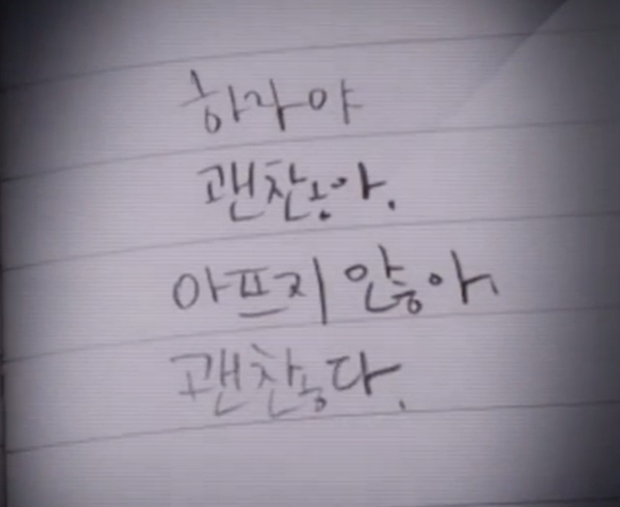 하자야
괜찮아.
아프지 않아.
괜찮다.